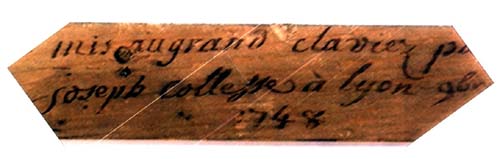 mis au grand clavier p
joseph collesse à lyon 9b
1748